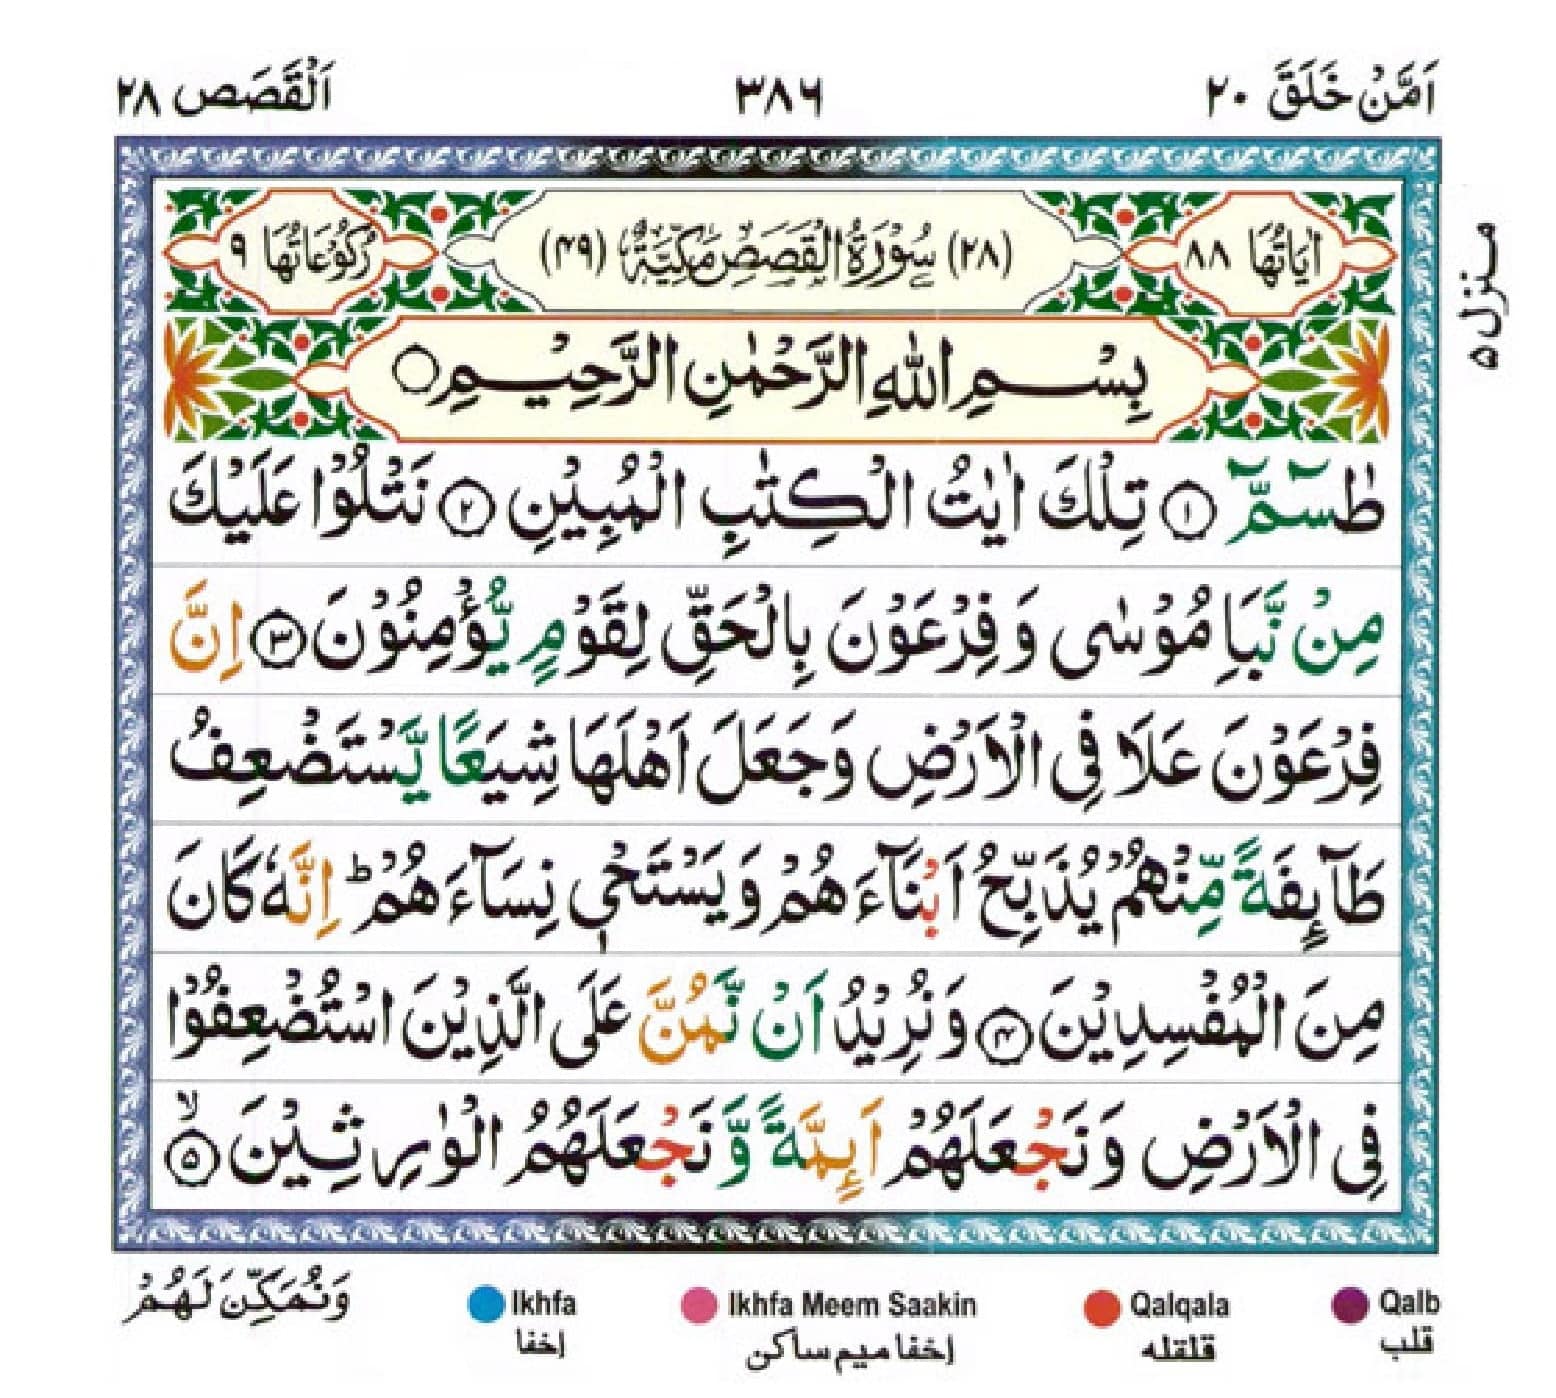 اَمَّنْ خَلَقَ ۲۰ ۳۸۶ اَلْقَصَص ۲۸
اٰيَاتُهَا ۸۸ (۲۸) سُوْرَةُ الْقَصَصِ مَكِّيَّةٌ (۴۹) رُكُوْعَاتُهَا ۹
منزل ۵
بِسْمِ اللهِ الرَّحْمٰنِ الرَّحِيْمِ ○
طٰسٓمّٓ ① تِلْكَ اٰيٰتُ الْكِتٰبِ الْمُبِيْنِ ② نَتْلُوْا عَلَيْكَ
مِنْ نَّبَاِ مُوْسٰى وَفِرْعَوْنَ بِالْحَقِّ لِقَوْمٍ يُّؤْمِنُوْنَ ③ اِنَّ
فِرْعَوْنَ عَلَا فِى الْاَرْضِ وَجَعَلَ اَهْلَهَا شِيَعًا يَّسْتَضْعِفُ
طَآىِٕفَةً مِّنْهُمْ يُذَبِّحُ اَبْنَآءَهُمْ وَيَسْتَحْىٖ نِسَآءَهُمْ ؕ اِنَّهٗ كَانَ
مِنَ الْمُفْسِدِيْنَ ④ وَنُرِيْدُ اَنْ نَّمُنَّ عَلَى الَّذِيْنَ اسْتُضْعِفُوْا
فِى الْاَرْضِ وَنَجْعَلَهُمْ اَىِٕمَّةً وَّنَجْعَلَهُمُ الْوٰرِثِيْنَ ۙ ⑤
وَنُمَكِّنَ لَهُمْ
Ikhfa Ikhfa Meem Saakin Qalqala Qalb
إخفا إخفا ميم ساكن قلقله قلب